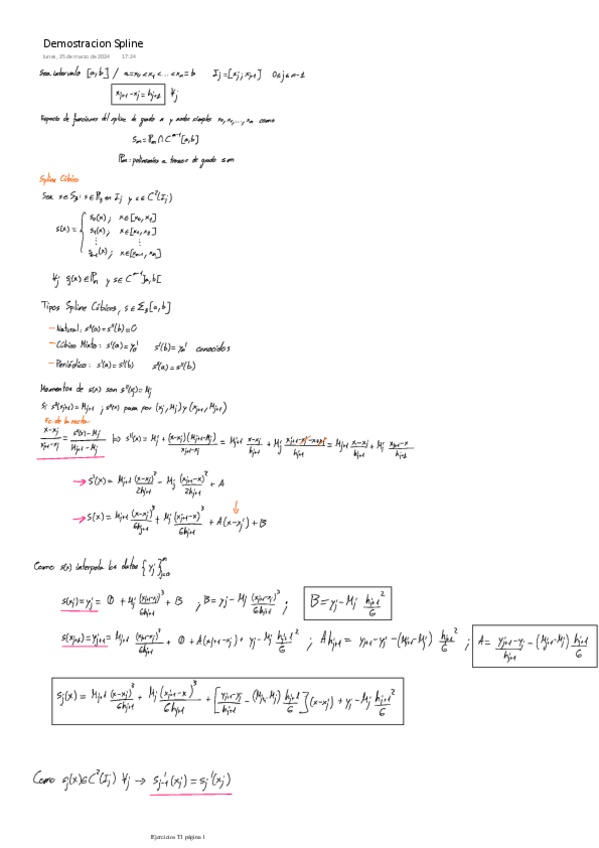 Demostracion Spline
lunes, 25 de marzo de 2024 17:24
Sea intervalo [a,b] / a=x₀<x₁<...<xₙ=b Iⱼ=[xⱼ, xⱼ₊₁] 0≤j≤n-1
xⱼ₊₁-xⱼ=hⱼ₊₁ ∀j
Espacio de funciones del spline de grado n y nodos simples x₀,x₁,...,xₙ como
Sₘ=ℙₘ∩Cᵐ⁻¹[a,b]
ℙₘ: polinomios a trozos de grado ≤m
Spline Cúbico
Sea s∈S₃: s∈ℙ₃ en Iⱼ y s∈C²(Iⱼ)
s(x)= { s₀(x); x∈[x₀,x₁]
s₁(x); x∈[x₁,x₂]
⋮ ⋮
sₙ₋₁(x); x∈[xₙ₋₁,xₙ]
∀j sⱼ(x)∈ℙₙ y s∈Cⁿ⁻¹]a,b[
Tipos Spline Cúbicos, s∈Σ₃[a,b]
- Natural: s''(a)=s''(b)=0
- Cúbico Mixto: s'(a)=y₀' s'(b)=yₙ' conocidos
- Periódico: s'(a)=s'(b) s''(a)=s''(b)
Momentos de s(x) son s''(xⱼ)=Mⱼ
Si s''(xⱼ₊₁)=Mⱼ₊₁; s''(x) pasa por (xⱼ,Mⱼ) y (xⱼ₊₁,Mⱼ₊₁)
Ec. de la recta
(x-xⱼ)/(xⱼ₊₁-xⱼ) = (s''(x)-Mⱼ)/(Mⱼ₊₁-Mⱼ) |⇒ s''(x)=Mⱼ+(x-xⱼ)(Mⱼ₊₁-Mⱼ)/(xⱼ₊₁-xⱼ) = Mⱼ₊₁ (x-xⱼ)/hⱼ₊₁ + Mⱼ (xⱼ₊₁-xⱼ-x+xⱼ)/hⱼ₊₁ = Mⱼ₊₁ (x-xⱼ)/hⱼ₊₁ + Mⱼ (xⱼ₊₁-x)/hⱼ₊₁
→ s'(x)= Mⱼ₊₁ (x-xⱼ)²/2hⱼ₊₁ - Mⱼ (xⱼ₊₁-x)²/2hⱼ₊₁ + A
→ s(x)= Mⱼ₊₁ (x-xⱼ)³/6hⱼ₊₁ + Mⱼ (xⱼ₊₁-x)³/6hⱼ₊₁ + A(x-xⱼ) + B
Como s(x) interpola los datos {yⱼ}ⁿⱼ₌₀
s(xⱼ)=yⱼ= 0 + Mⱼ (xⱼ₊₁-xⱼ)³/6hⱼ₊₁ + B ; B=yⱼ-Mⱼ (xⱼ₊₁-xⱼ)³/6hⱼ₊₁ ; B=yⱼ-Mⱼ hⱼ₊₁²/6
s(xⱼ₊₁)=yⱼ₊₁= Mⱼ₊₁ (xⱼ₊₁-xⱼ)³/6hⱼ₊₁ + 0 + A(xⱼ₊₁-xⱼ) + yⱼ-Mⱼ hⱼ₊₁²/6 ; A hⱼ₊₁ = yⱼ₊₁-yⱼ-(Mⱼ₊₁-Mⱼ) hⱼ₊₁²/6 ; A= (yⱼ₊₁-yⱼ)/hⱼ₊₁ - (Mⱼ₊₁-Mⱼ) hⱼ₊₁/6
sⱼ(x)= Mⱼ₊₁ (x-xⱼ)³/6hⱼ₊₁ + Mⱼ (xⱼ₊₁-x)³/6hⱼ₊₁ + [(yⱼ₊₁-yⱼ)/hⱼ₊₁ - (Mⱼ₊₁-Mⱼ) hⱼ₊₁/6](x-xⱼ) + yⱼ-Mⱼ hⱼ₊₁²/6
Como sⱼ(x)∈C²(Iⱼ) ∀j → s'ⱼ₋₁(xⱼ)=sⱼ'(xⱼ)
Ejercicios T1 página 1